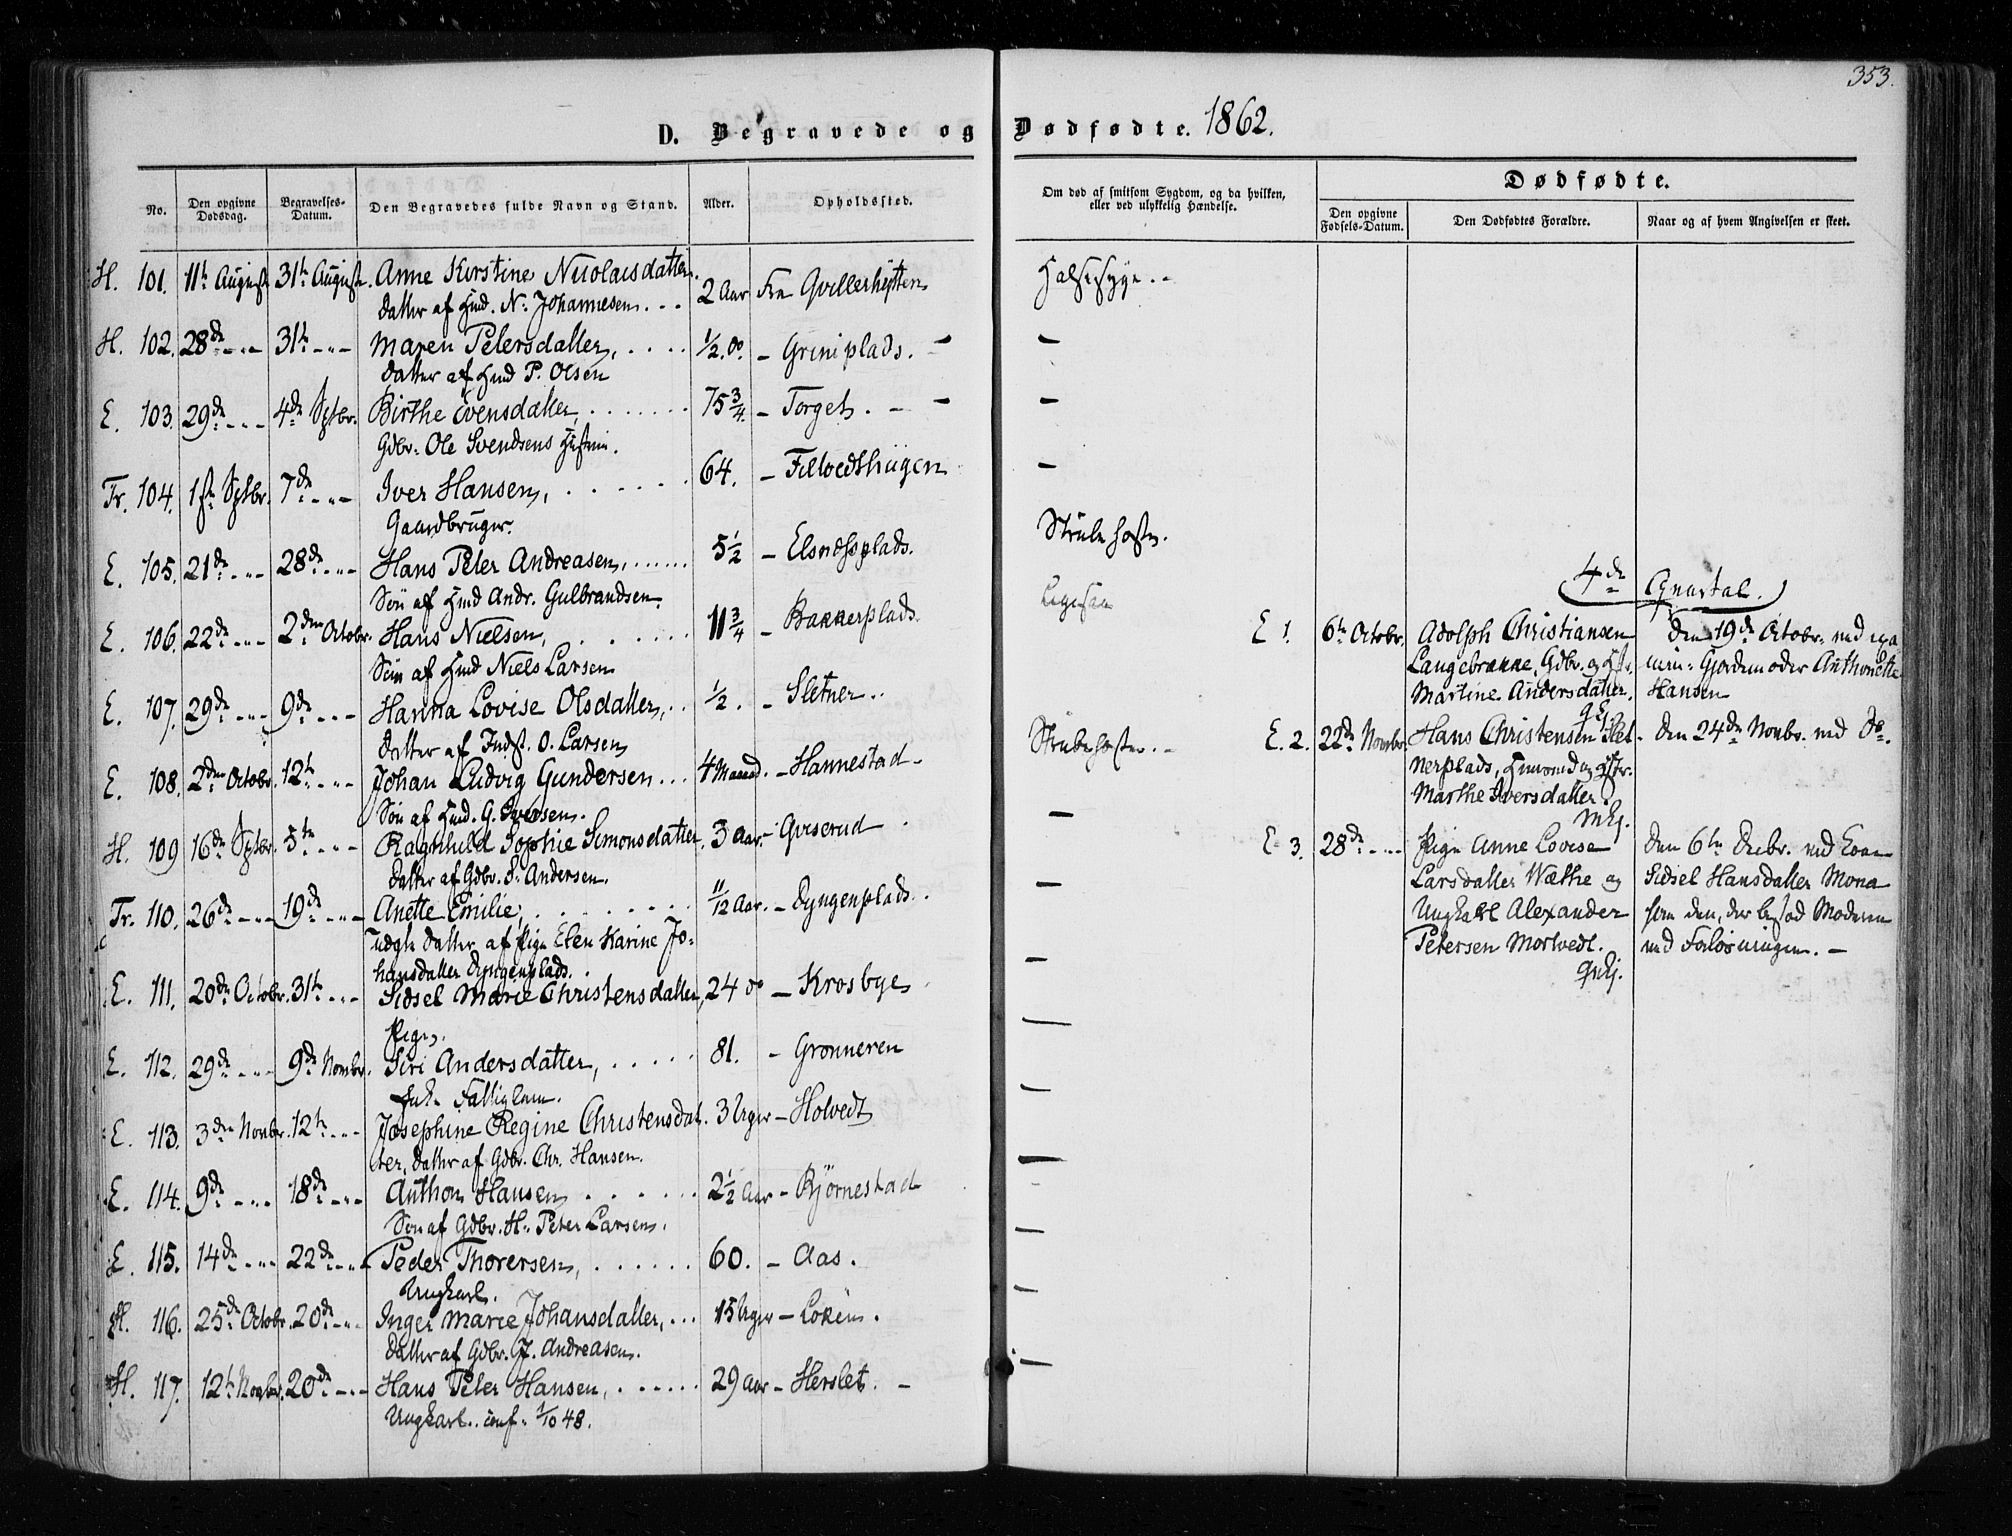 353.
D. Begravede og Dødfødte. 1862.
No. Den opgivne Dødsdag. Begravelses-Datum. Den Begravedes fulde Navn og Stand. Alder. Opholdssted.
Om død af smitsom Sygdom, og da hvilken, eller ved ulykkelig Hændelse.
Dødfødte.
Den opgivne Fødsels-Datum. Den Dødfødtes Forældre. Naar og af hvem Angivelsen er skeet.
H. 101. 11te August 31te August. Anne Kirstine Nicolaisdatter. 2 Aar Fra
datter af Huusm. N. Johannesen. Halssyge. -
H. 102. 28de - - - 31te - - - Maren Petersdatter, . . . . 1/2. do. - Griniplads. -
datter af Huusm P. Olsen
E. 103. 29de - - - 4de Sptbr. Birthe Evensdatter, . . . . 75 3/4 - Torget. - -
Gdbr. Ole Svendsens Hustru.
Tr. 104. 1ste Sptbr. 7de - - - Iver Hansen, . . . . 64. -
Gaardbruger.
E. 105. 21de - - - 28de - - - Hans Peter Andreasen, . . . . 5 1/2 - Strubehoste.
Søn af Huusm Andr. Gulbrandsen.
E. 106. 22de - - - 2den Octobr. Hans Nielsen, . . . . 11 3/4 - Bakkerplads. Ligesaa
Søn af Huusm Niels Larsen
E. 107. 29de - - - 9de - - - Hanna Lovise Olsdatter, . . 1/2. - Sletner.
datter af Indst. O. Larsen
E. 108. 2den Octobr. 12te - - - Johan Ludvig Gundersen . . . 4 Maaned. - Hannestad - Strubehoste. -
Søn af Huusm. G. Iversen.
H. 109 16de Sptbr. 5te - - - Ragnhild Sophie Simonsdatter. 3 Aar. - Gviserud
datter af Gdbr. S. Andersen.
Tr. 110. 26de - - - 19de - - - Anette Emilie, . . . . 11/12 Aar. - Dyngenplads.
uægte datter af Pige Elen Karine Jo-
hansdatter Dyngenplads.
E. 111. 20de Octobr. 31te - - - Sidsel Marie Christensdatter, 24 do - Krosbye
Pige.
E. 112. 29de - - - 9de Novbr. Siri Andersdatter, . . . . 81. - Grønneren
Fattiglem.
E. 113. 3die Novbr. 12te - - - Josephine Regine Christensdat- 3 Uger - Holvedt
ter, datter af Gdbr. Chr. Hansen.
E. 114. 9de - - - 18de - - - Anthon Hansen . . . . 2 1/2 Aar - Bjørnestad
Søn af Gdbr. H. Peter Larsen.
E. 115. 14de - - - 22de - - - Peder Thorersen, . . . . 60. - Aas.
Ungkarl.
H. 116. 25de Octobr. 20de - - - Inger Marie Johansdatter, . . . 15 Uger - Løken.
datter af Gdbr. J. Andreasen.
H. 117. 12te Novbr. 20de - - - Hans Peter Hansen, . . . . 29 Aar - Herslet. -
Ungkarl. conf. 1/10 48.
4de Quartal.
E 1. 6te Octobr. Adolph Christiansen
Langebrække, Gdbr. og Hstr.
Martine Andersdatter.
Den 19de Octobr. ved
Gjordemoder Anthonette
Hansen
E. 2. 22de Novbr. Hans Christensen Slet-
nerplads, Huusmand og Hstr.
Marthe Iversdatter.
Den 24de Novbr. ved do.
E 3. 28de - - - Pige Anne Lovise
Larsdatter Wæthe og
Ungkarl Alexander
Petersen Mortvedt.
Den 6te Decbr. ved
Sidsel Hansdatter Mona
som den, der bistod Moderen
ved Forløsningen. -